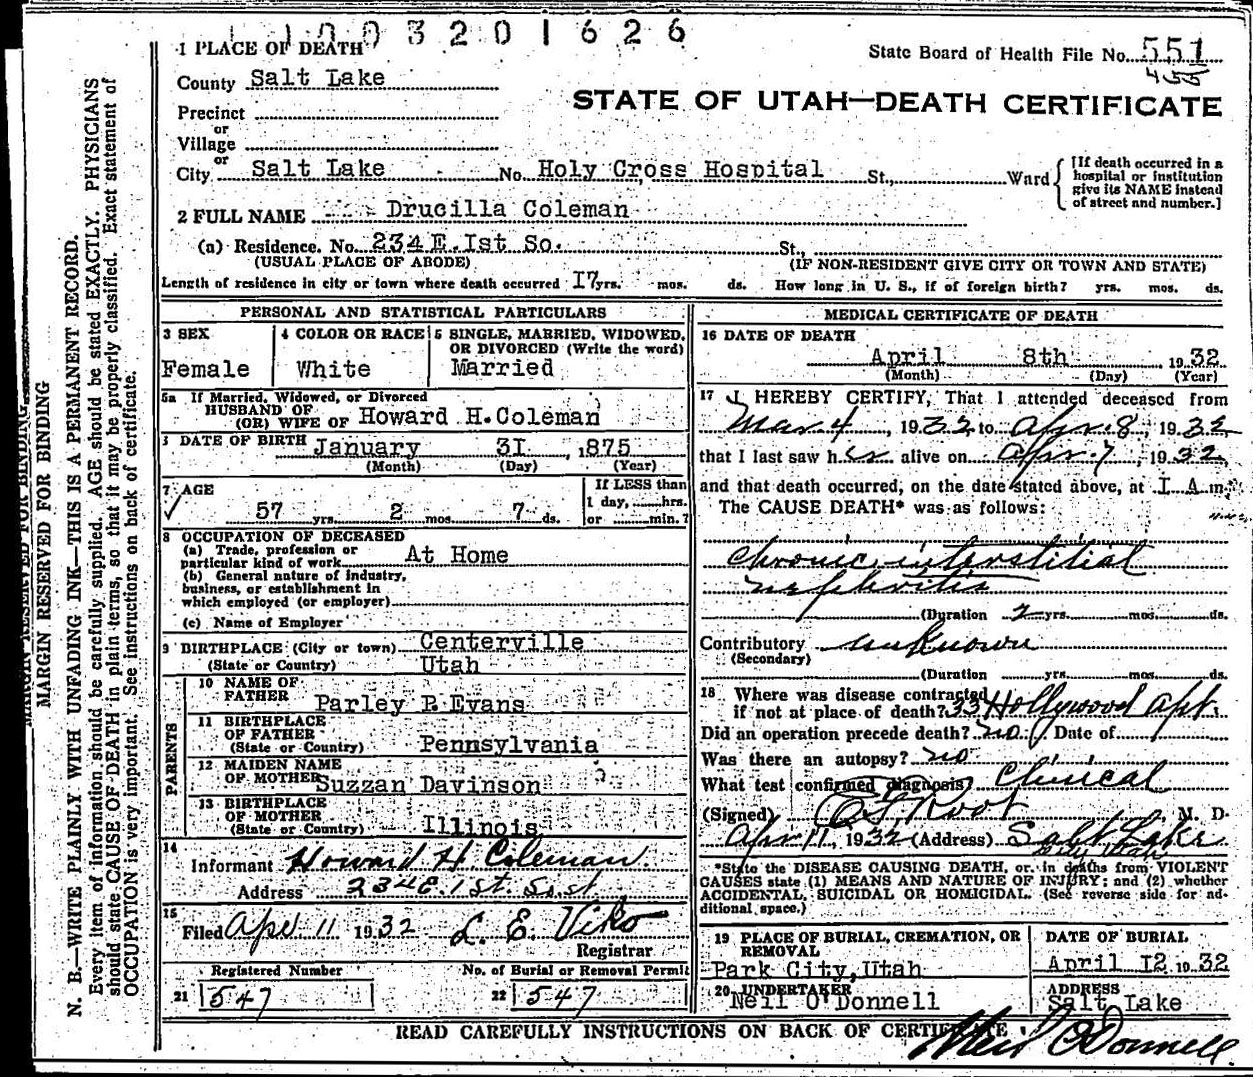 1003201626
1 PLACE OF DEATH
State Board of Health File No. 551
455
County Salt Lake
STATE OF UTAH—DEATH CERTIFICATE
Precinct
or
Village
or
City Salt Lake No. Holy Cross Hospital St., Ward
[If death occurred in a
hospital or institution
give its NAME instead
of street and number.]
2 FULL NAME Drucilla Coleman
(a) Residence. No. 234 E. Ist So. St.,
(USUAL PLACE OF ABODE) (IF NON-RESIDENT GIVE CITY OR TOWN AND STATE)
Length of residence in city or town where death occurred I7 yrs. mos. ds. How long in U. S., if of foreign birth? yrs. mos. ds.
PERSONAL AND STATISTICAL PARTICULARS
3 SEX
Female
4 COLOR OR RACE
White
5 SINGLE, MARRIED, WIDOWED,
OR DIVORCED (Write the word)
Married
5a If Married, Widowed, or Divorced
HUSBAND OF
(OR) WIFE OF Howard H. Coleman
DATE OF BIRTH January 3I, 1875
(Month) (Day) (Year)
7 AGE
57 yrs. 2 mos. 7 ds.
If LESS than
1 day, hrs.
or min.?
8 OCCUPATION OF DECEASED
(a) Trade, profession or
particular kind of work At Home
(b) General nature of industry,
business, or establishment in
which employed (or employer)
(c) Name of Employer
9 BIRTHPLACE (City or town) Centerville
(State or Country) Utah
PARENTS
10 NAME OF
FATHER Parley P. Evans
11 BIRTHPLACE
OF FATHER
(State or Country) Pennsylvania
12 MAIDEN NAME
OF MOTHER Suzzan Davinson
13 BIRTHPLACE
OF MOTHER
(State or Country) Illinois
14
Informant Howard H Coleman
Address 234 E. 1st. So. st
15
Filed Apr 11 1932 L. E. Viko
Registrar
Registered Number
21 547
No. of Burial or Removal Permit
22 547
MEDICAL CERTIFICATE OF DEATH
16 DATE OF DEATH
April 8th 1932
(Month) (Day) (Year)
17 I HEREBY CERTIFY, That I attended deceased from
Mar 4, 1932 to Apr. 8, 1932
that I last saw her alive on Apr 7, 1932,
and that death occurred, on the date stated above, at I A m.
The CAUSE DEATH* was as follows:
Chronic interstitial
nephritis
(Duration 2 yrs. mos. ds.
Contributory unknown
(Secondary)
(Duration yrs. mos. ds.
18 Where was disease contracted
if not at place of death? 33 Hollywood Apt.
Did an operation precede death? no Date of
Was there an autopsy? no
What test confirmed diagnosis? Clinical
(Signed) Root, M. D.
Apr 11, 1932 (Address) Salt Lake
City Utah
*State the DISEASE CAUSING DEATH, or in deaths from VIOLENT
CAUSES state (1) MEANS AND NATURE OF INJURY; and (2) whether
ACCIDENTAL, SUICIDAL OR HOMICIDAL. (See reverse side for ad-
ditional space.)
19 PLACE OF BURIAL, CREMATION, OR
REMOVAL
Park City, Utah
DATE OF BURIAL
April I2 1932
20 UNDERTAKER
Neil O'Donnell
ADDRESS
Salt Lake
READ CAREFULLY INSTRUCTIONS ON BACK OF CERTIFICATE
Neil O'Donnell
MARGIN RESERVED FOR BINDING
MARGIN RESERVED FOR BINDING
N. B.—WRITE PLAINLY WITH UNFADING INK—THIS IS A PERMANENT RECORD.
Every item of information should be carefully supplied. AGE should be stated EXACTLY. PHYSICIANS
should state CAUSE OF DEATH in plain terms, so that it may be properly classified. Exact statement of
OCCUPATION is very important. See instructions on back of certificate.